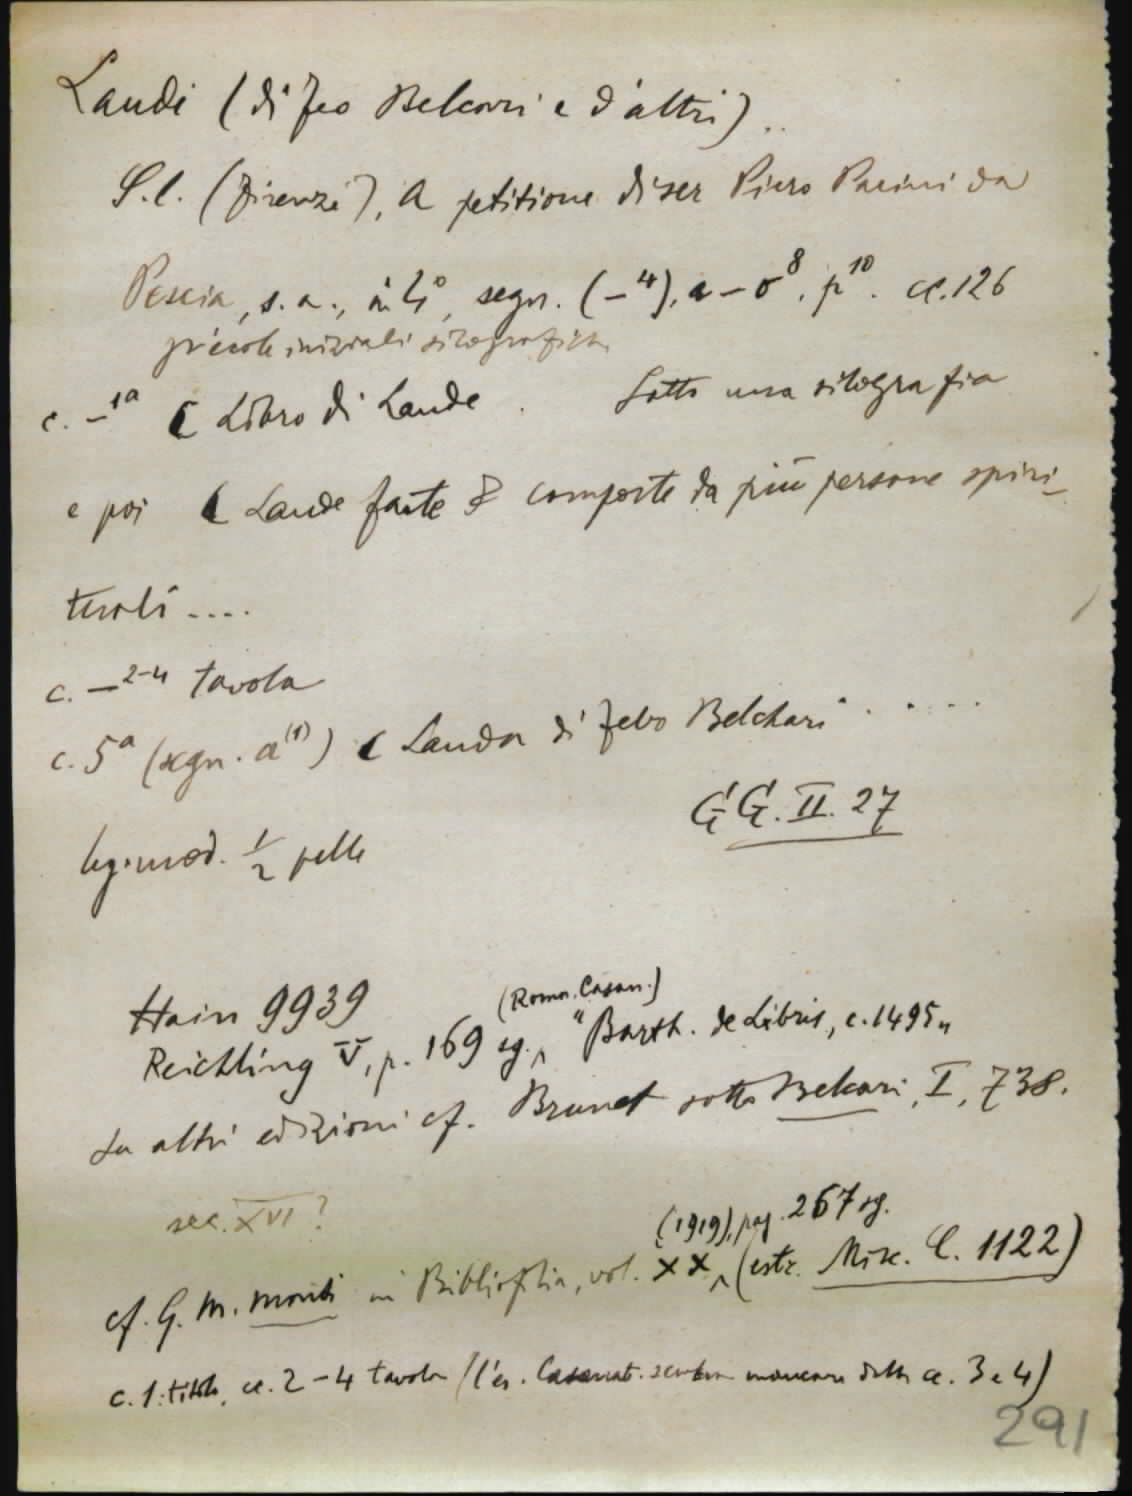 Laudi (di Feo Belcari e d'altri)..
S.l. (Firenze), A petitione di ser Piero Pacini da
Pescia, s. a., in 4°, segn. (–⁴), a–o⁸, p¹⁰. cc. 126
piccole iniziali silografiche
c. –¹ᵃ ( Libro di Laude . Sotto una silografia
e poi ( Laude facte & composte da più persone spiri-
tuali ....
c. –²⁻⁴ tavola
c. 5ᵃ (segn. a⁽¹⁾) ( Lauda di Febo Belchari . . . . .
GG. II. 27
leg. mod. ½ pelle
Hain 9939
(Roma. Casan.)
Reichling V, p. 169 sg. ^ "Barth. de Libris, c. 1495"
Su altri edizioni cf. Brunet sotto Belcari, I, 738.
sec. XVI?
(1919), pag. 267 sg.
cf. G. M. Monti in Bibliofilia, vol. XX ^ (estr. Misc. C. 1122)
c. 1: titolo, cc. 2–4 tavola (l'es. Casanat. sembra mancare delle cc. 3 e 4)
291